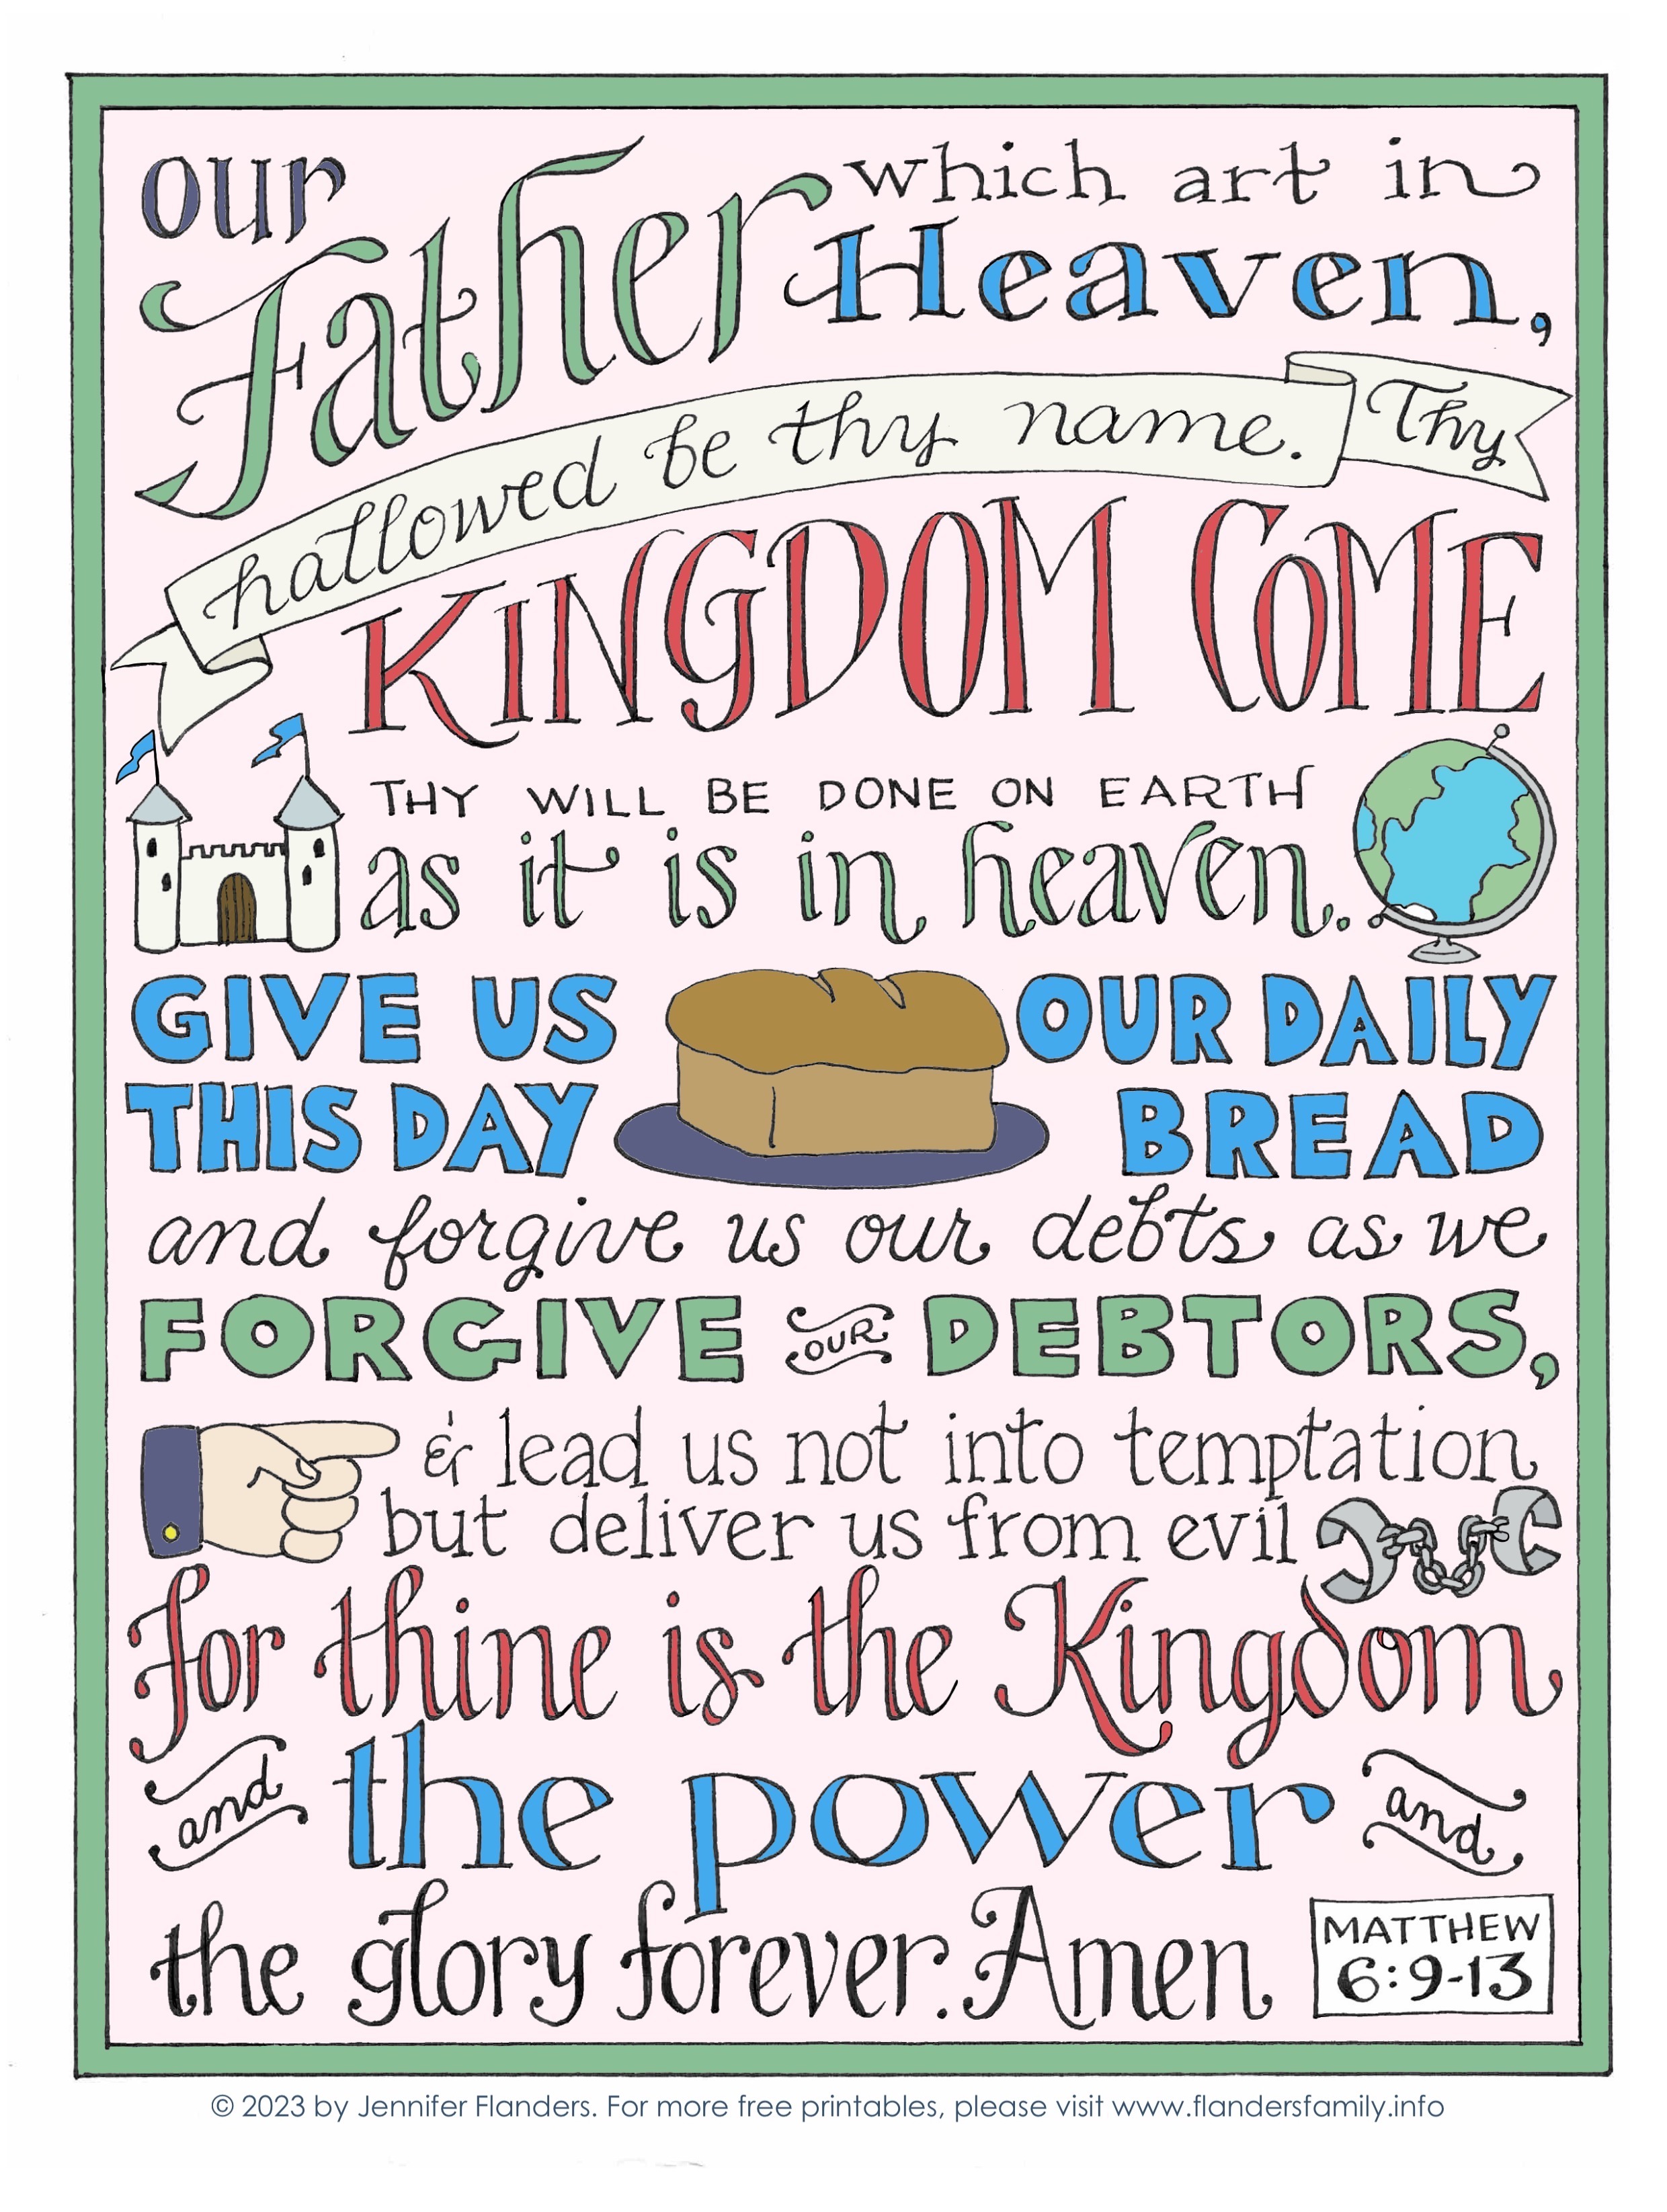 our Father which art in
Heaven,
hallowed be thy name. Thy
KINGDOM COME
THY WILL BE DONE ON EARTH
as it is in heaven.
GIVE US
THIS DAY
OUR DAILY
BREAD
and forgive us our debts as we
FORGIVE OUR DEBTORS,
& lead us not into temptation
but deliver us from evil
for thine is the Kingdom
and the power and
the glory forever. Amen
MATTHEW
6:9-13
© 2023 by Jennifer Flanders. For more free printables, please visit www.flandersfamily.info